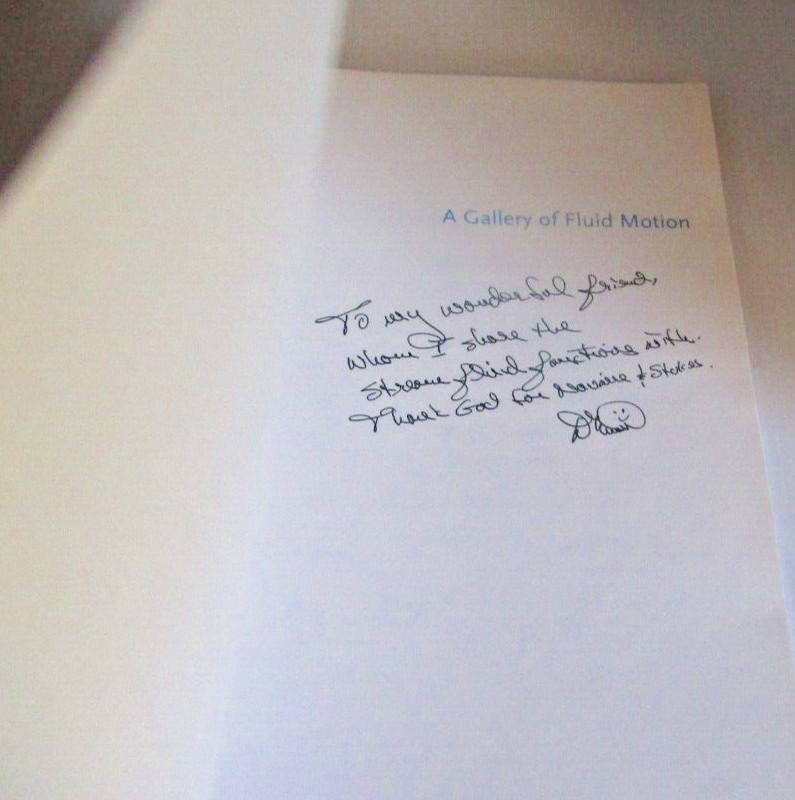 A Gallery of Fluid Motion
To my wonderful friend,
whom I share the
stream fluid functions with.
Thank God for Navier & Stokes.